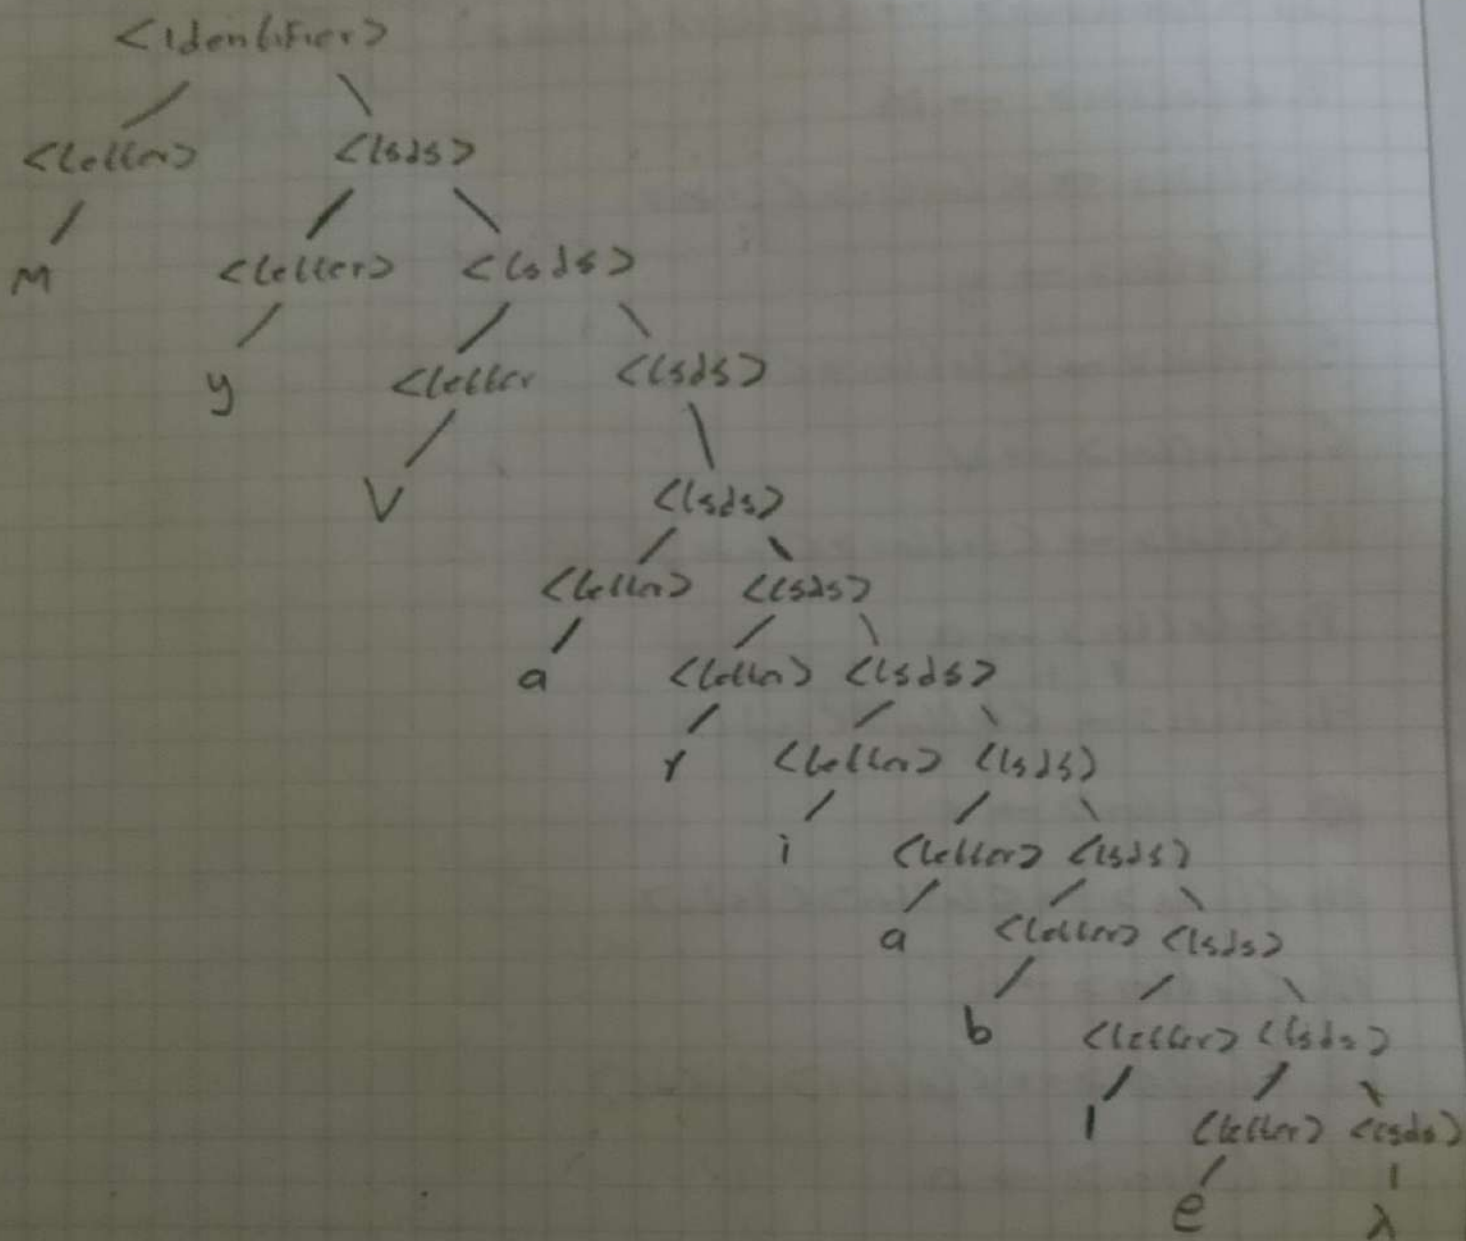 <Identifier>
<letter> <lsds>
M <letter> <lsds>
y <letter <lsds>
V <lsds>
<letter> <lsds>
a <letter> <lsds>
r <letter> <lsds>
i <letter> <lsds>
a <letter> <lsds>
b <letter> <lsds>
l <letter> <lsds>
e λ